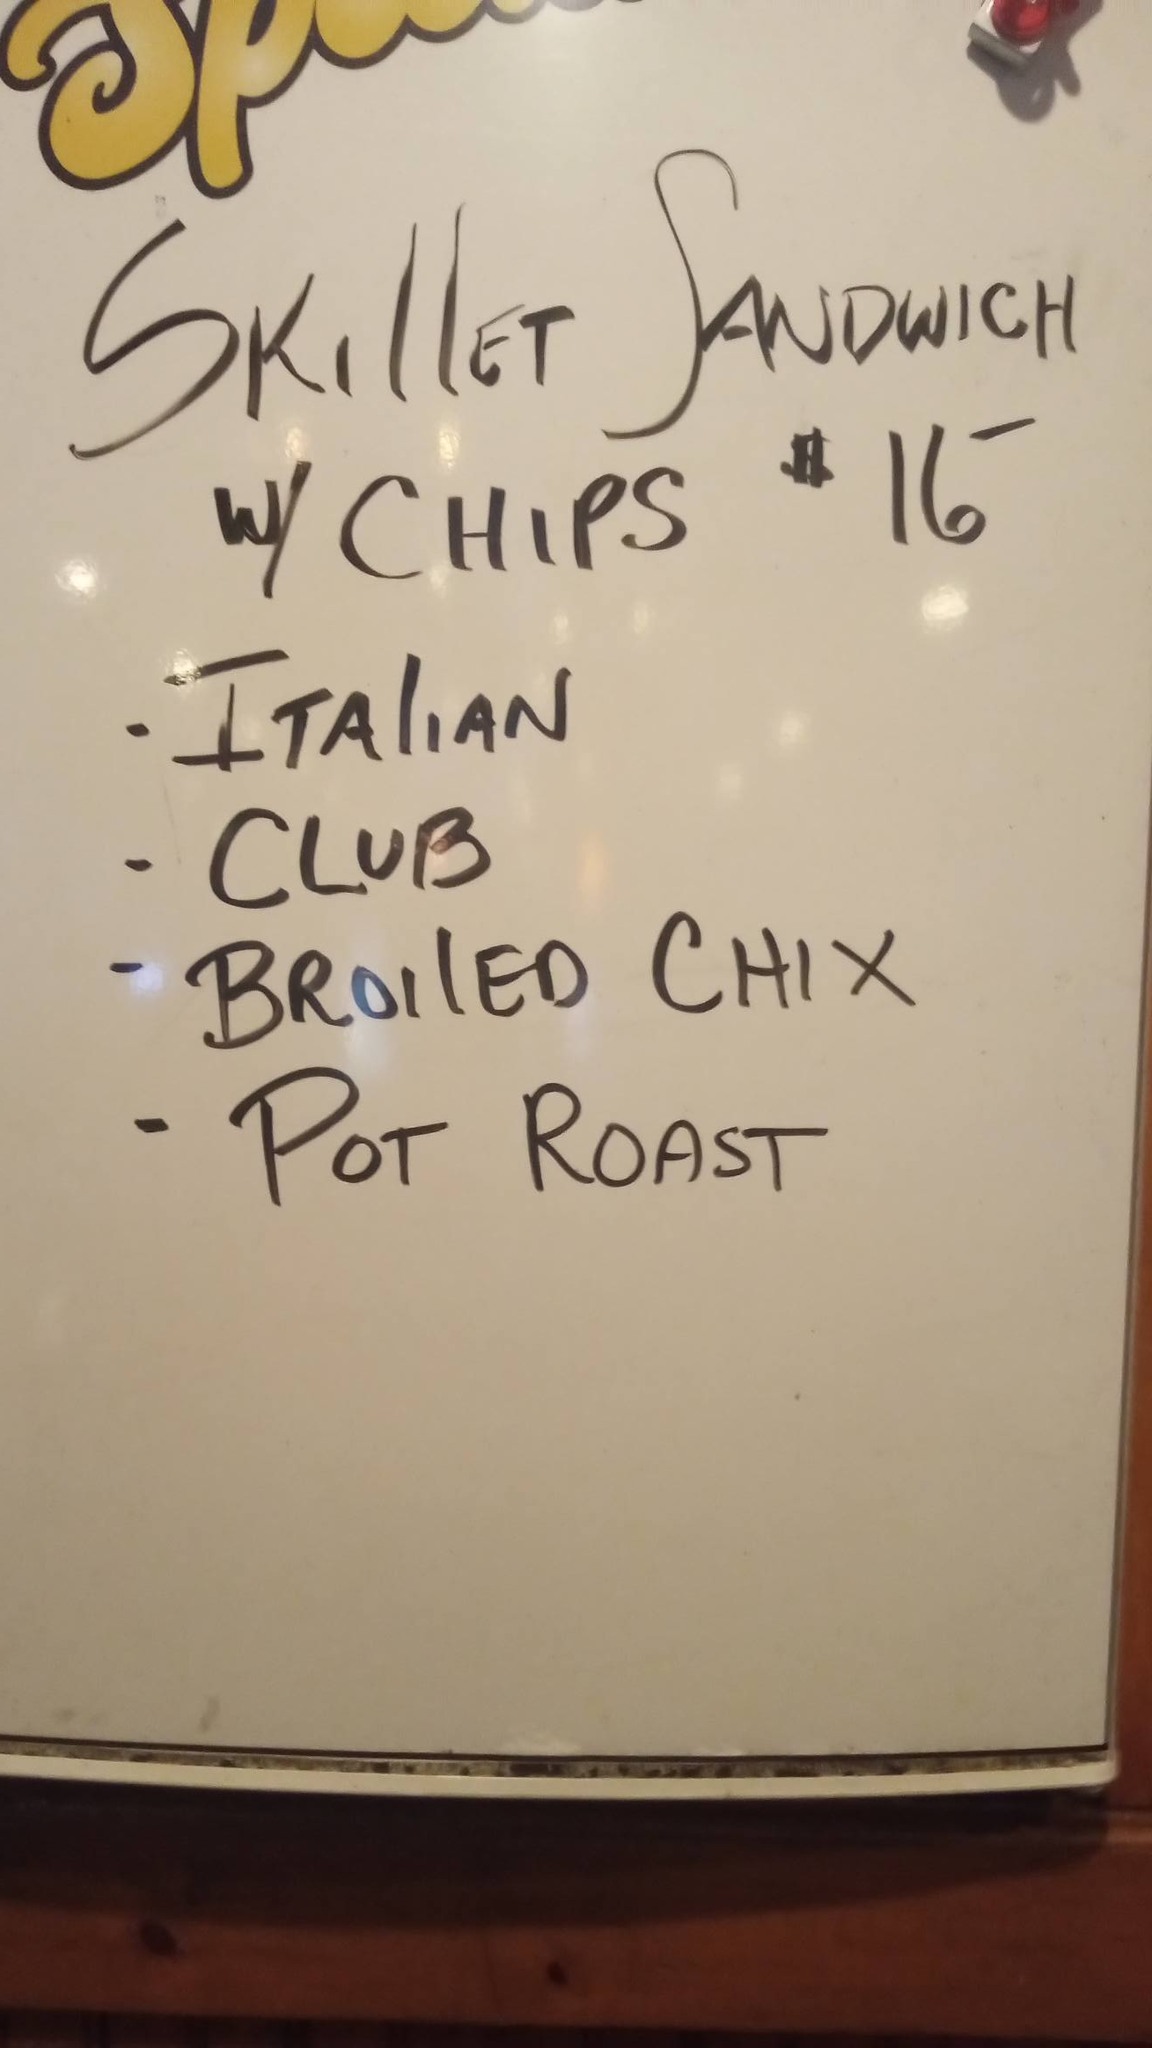 Skillet Sandwich
w/ CHIPS $16-
- ITALIAN
- CLUB
- BROILED CHIX
- POT ROAST